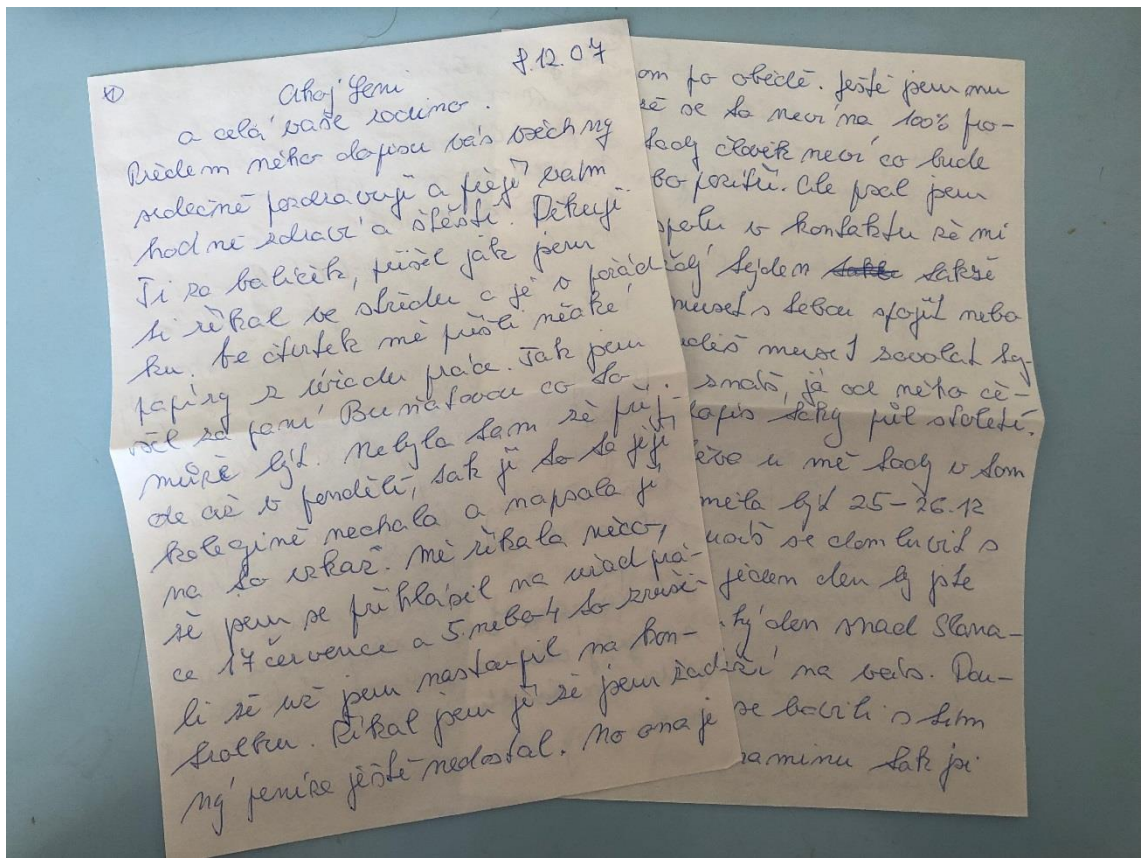 8.12.07
① Ahoj Jeni
a celá vaše rodino.
Předem mého dopisu vás všechny
srdečně pozdravuji a přeji vám
hodně zdraví a štěstí. Děkuji
Ti za balíček, přišel jak jsem
ti říkal ve středu a je v pořád-
ku. Ve čtvrtek mě přišli nějaké
papíry z úřadu práce. Tak jsem
za paní Buňatovou co to
může být. Nebyla tam že při-
de až v pondělí, tak jí to ta její
kolegině nechala a napsala jí
na to vzkaz. Mě říkala něco,
že jsem se přihlásil na úřad prá-
ce 17 července a 5. nebo 4 to zruši-
li že už jsem nastoupil na kon-
trolku. Říkal jsem jí že jsem žád-
ný peníze ještě nedostal. No ona je
om po obědě. Ještě jsem mu
že se to neví na 100% po-
tady člověk neví co bude
bo pozítří. Ale psal jsem
spolu v kontaktu že mi
týden takže
muset s tebou spojit nebo
deš muset zavolat
snadš já od něho
dopis taky půl století.
u mě tady v tom
měla být 25-26.12
se domluvit s
jeden den by jste
hý den snad Slana-
ži na vás. Dou-
se bavili s tím
maminu tak jsi